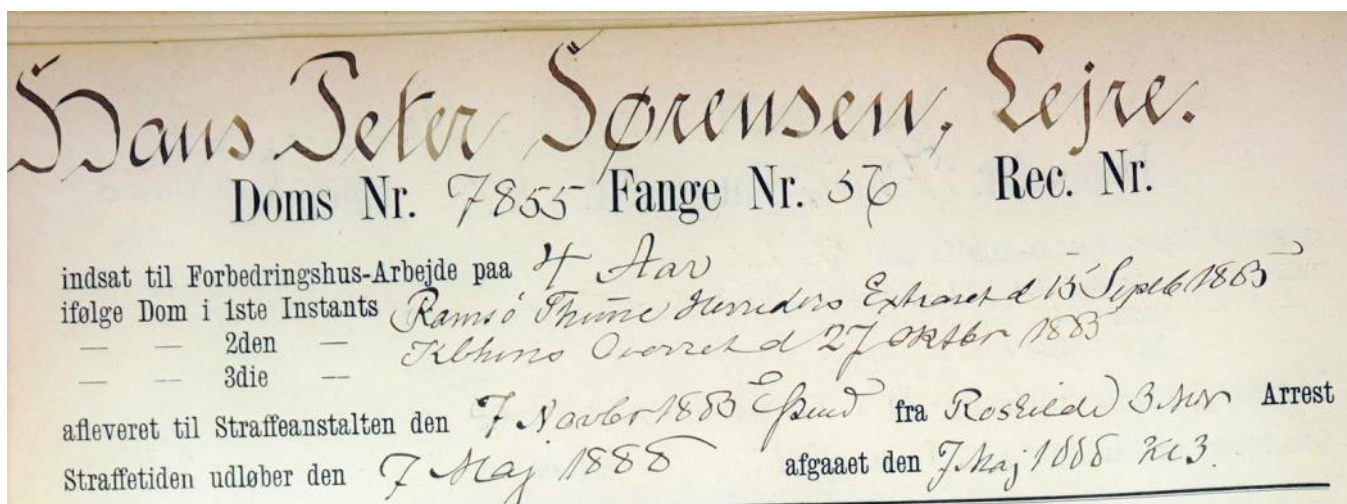 Hans Peter Sørensen, Lejre.
Doms Nr. 7855 Fange Nr. 56 Rec. Nr.
indsat til Forbedringshus-Arbejde paa 4 Aar
ifølge Dom i 1ste Instants Ramsö Thune Herreders Extraret d 15 Septb 1885
— — 2den — Kbhvns Overret d 27 Oktbr 1885
— — 3die —
afleveret til Straffeanstalten den 7 Novbr 1885 fra Roskilde Arrest
Straffetiden udløber den 7 Maj 1888 afgaaet den 7 Maj 1888 Kl 3.